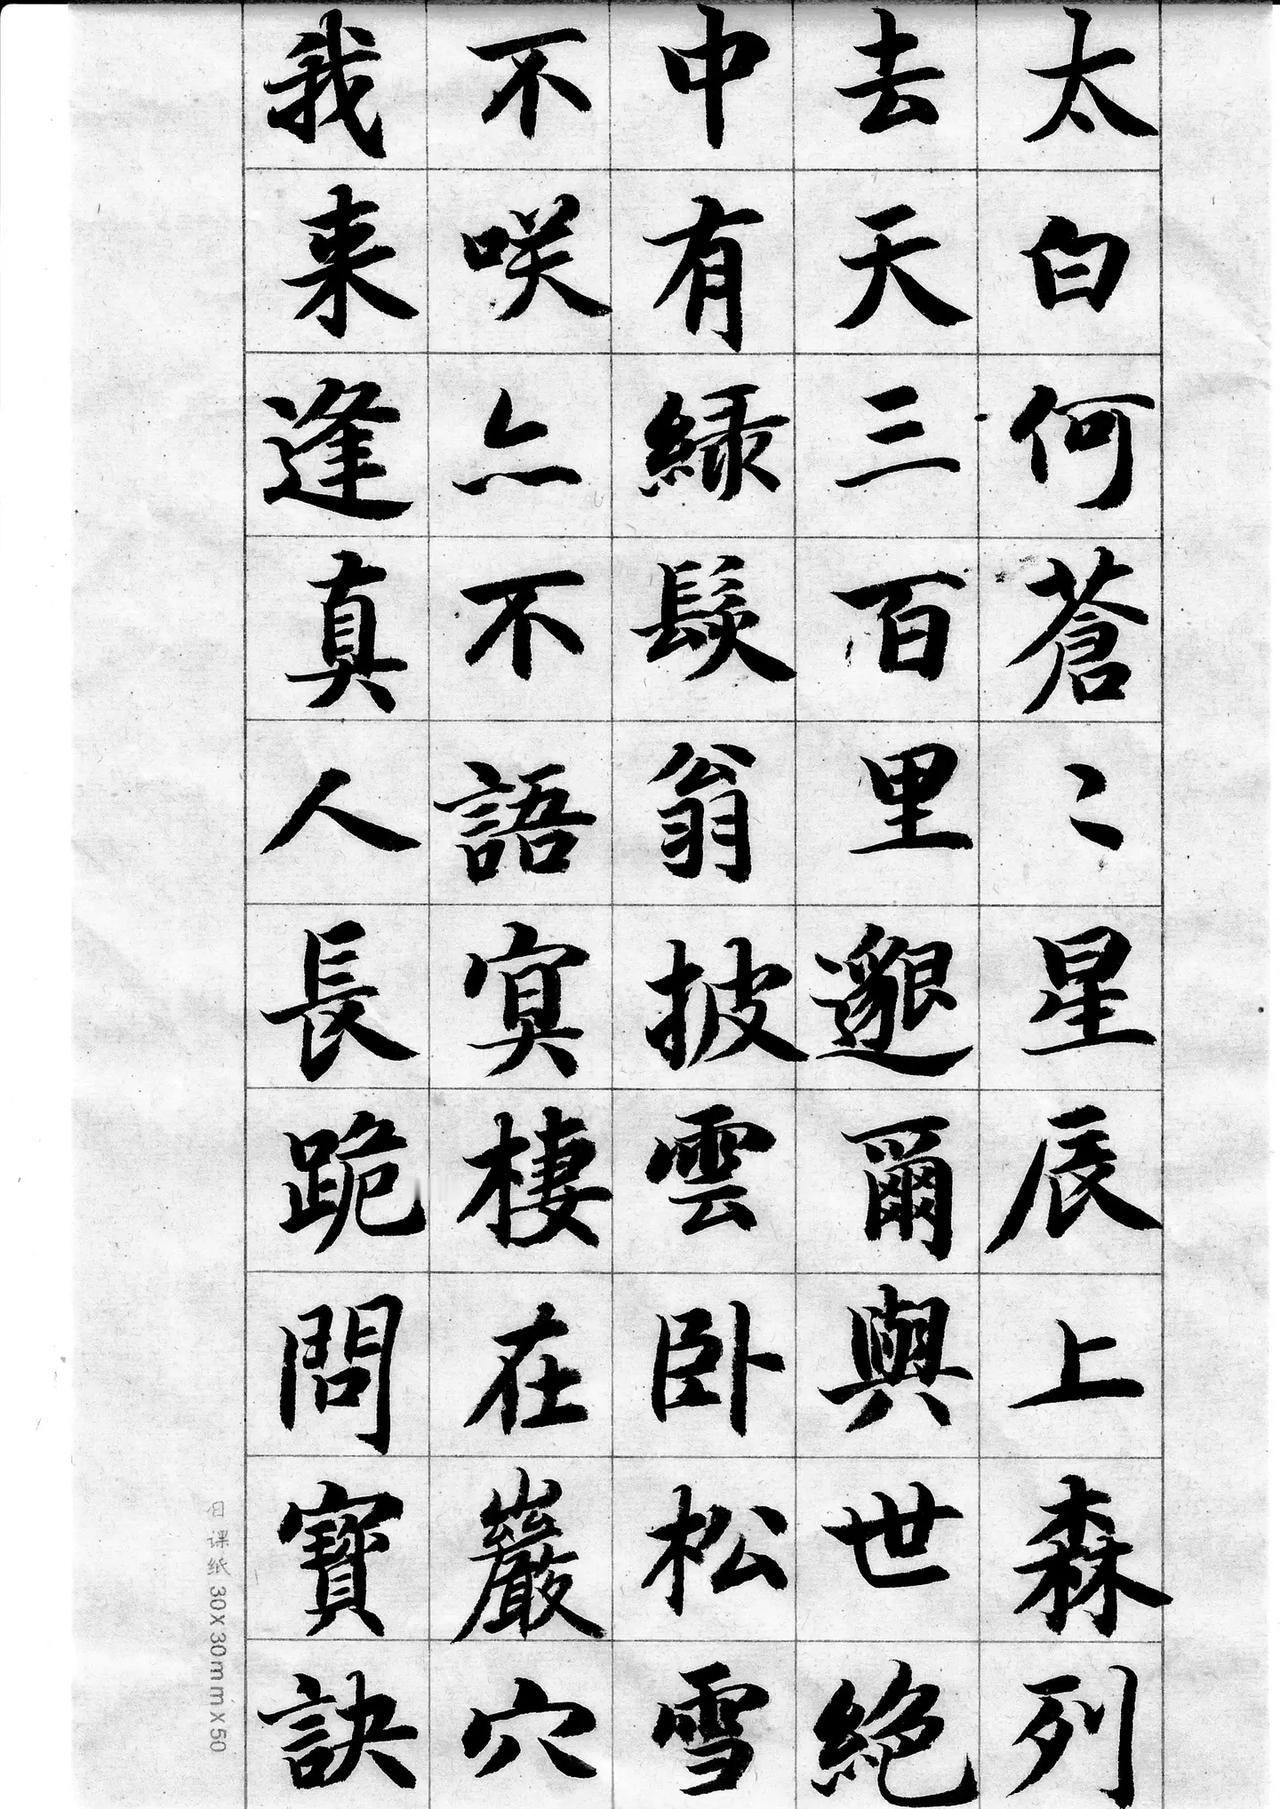 太白何蒼〻星辰上森列
去天三百里邈爾與世絶
中有緑髮翁披雲卧松雪
不咲亦不語冥棲在巖穴
我来逢真人長跪問寳訣
日课纸 30X30mm x50